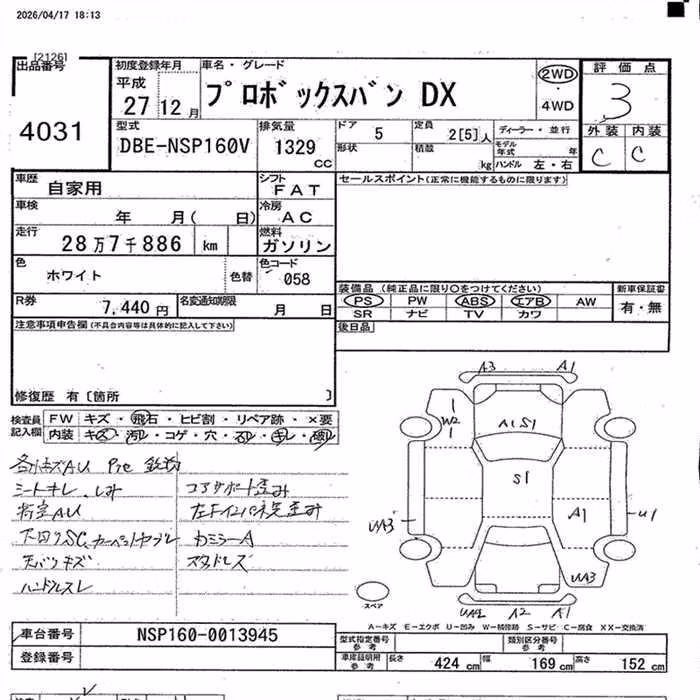 2026/04/17 18:13
[2126]
出品番号
4031
初度登録年月
平成
27 12 月
車名・グレード
プロボックスバン DX
2WD
4WD
評価点
3
外装 内装
C C
型式
DBE-NSP160V
排気量
1329
CC
ドア 5
形状
定員 2[5]人
積載 kg
ディーラー・並行
モデル年式 年
ハンドル 左・右
車歴
自家用
シフト
FAT
車検
年 月( 日)
冷房
AC
走行
28万7千886 km
燃料
ガソリン
色
ホワイト
色替
色コード
058
R券
7,440円
名変通知期限
月 日
セールスポイント(正常に機能するものに限ります)
装備品 (純正品に限り○をつけてください)
PS PW ABS エアB AW
SR ナビ TV カワ
新車保証書
有・無
後日品
注意事項申告欄(不具合内容等は具体的に記入して下さい)
修復歴 有〔箇所 〕
検査員記入欄
FW キズ・飛石・ヒビ割・リペア跡・×要
内装 キズ・汚レ・コゲ・穴・スレ・キレ・
各小キズAU
シートキレ、しみ
下回りSC
天バリキズ
ハンドルスレ
コアサポート歪み
カミラーA
スタドレス
A3 A1
W2
A1S1
S1
UA3
A1
U1
UA3
UA2 A2 A1
スペア
A-キズ E-エクボ U-凹み W-補修跡 S-サビ C-腐食 XX-交換済
車台番号
NSP160-0013945
登録番号
型式指定番号 参考
類別区分番号 参考
車庫証明用 参考
長さ 424 cm 幅 169 cm 高さ 152 cm